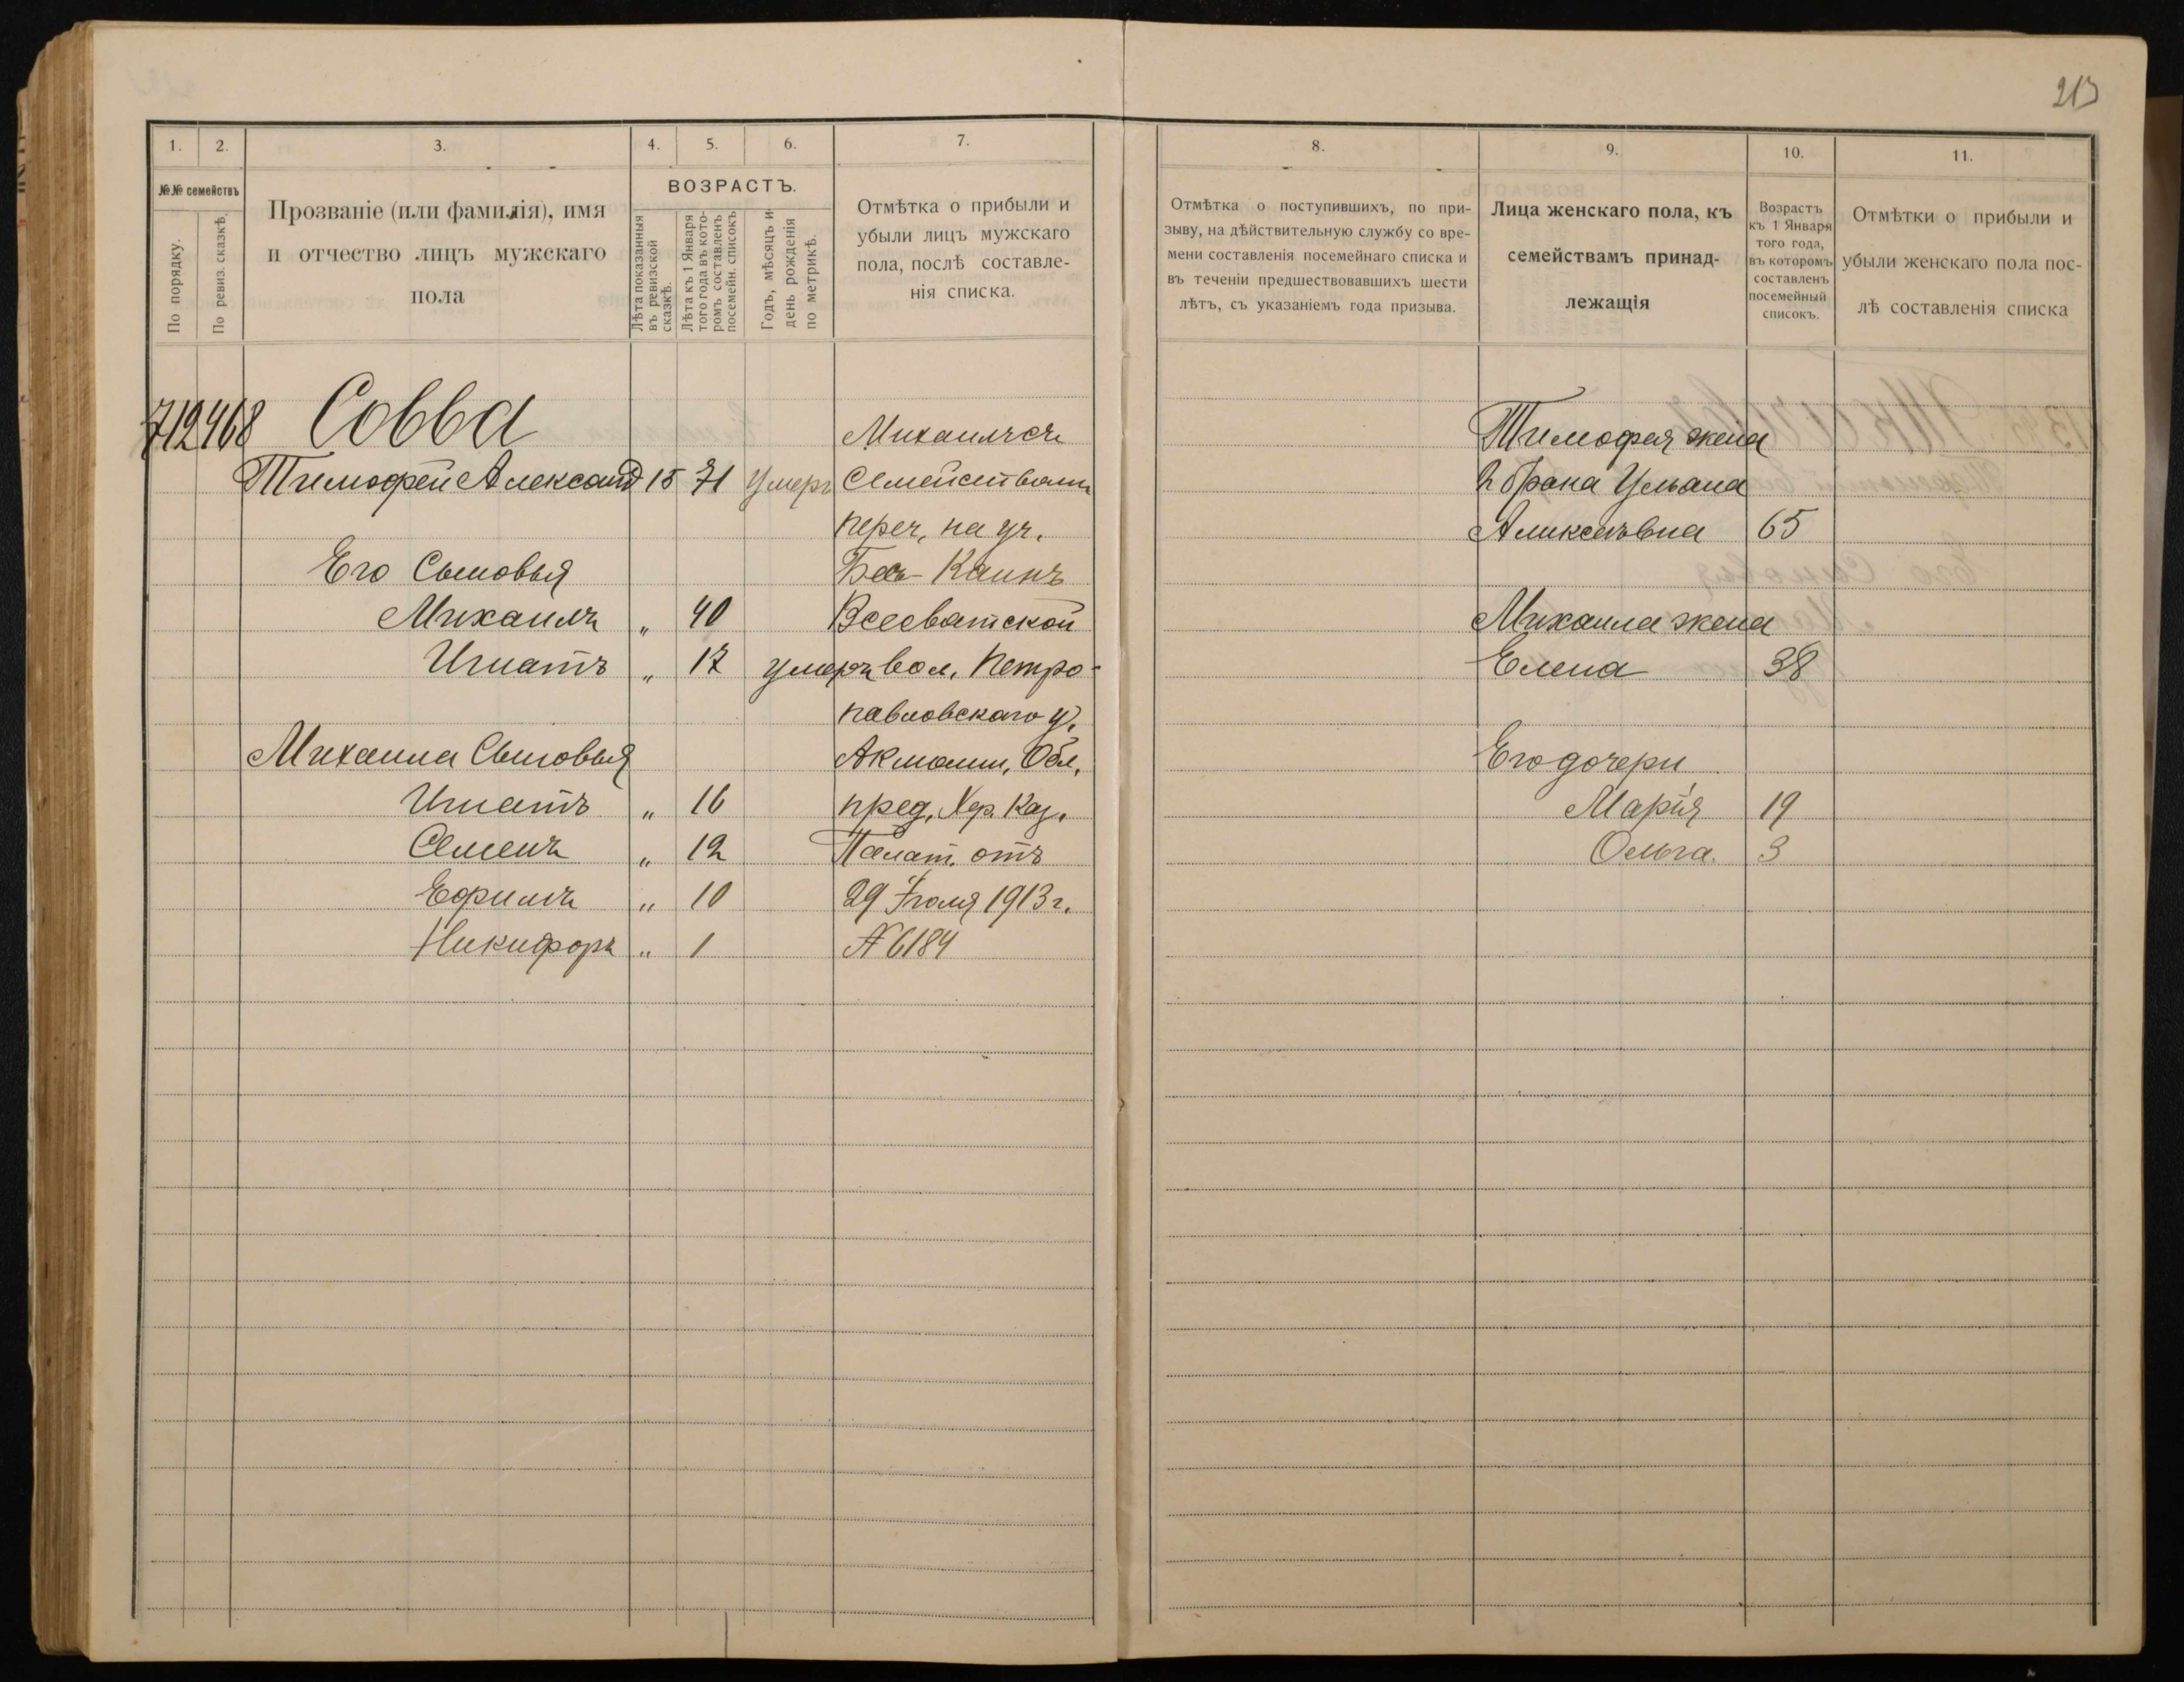 213
1. 2. 3. 4. 5. 6. 7.
№№ семействъ
По порядку.
По ревиз. сказкѣ.
Прозваніе (или фамилія), имя
и отчество лицъ мужскаго
пола
ВОЗРАСТЪ.
Лѣта показанныя
въ ревизской
сказкѣ.
Лѣта къ 1 Января
того года въ кото-
ромъ составленъ
посемейн. списокъ
Годъ, мѣсяцъ и
день рожденія
по метрикѣ.
Отмѣтка о прибыли и
убыли лицъ мужскаго
пола, послѣ составле-
нія списка.
712 468 Совва
Михаилъ съ
Тимофей Александ 15 71 умеръ Семействомъ
переч, на уч.
Его Сыновья Бесъ-Каинъ
Михаилъ „ 40 Всесватской
Игнатъ „ 17 умеръ вол. Петро-
павловскаго у.
Михаила Сыновья Акмолин. Обл.
Игнатъ „ 16 пред. Хер. Каз.
Семенъ „ 12 Палат. отъ
Ефимъ „ 10 29 Іюля 1913 г.
Никифоръ „ 1 № 6184
8. 9. 10. 11.
Отмѣтка о поступившихъ, по при-
зыву, на дѣйствительную службу со вре-
мени составленія посемейнаго списка и
въ теченіи предшествовавшихъ шести
лѣтъ, съ указаніемъ года призыва.
Лица женскаго пола, къ
семействамъ принад-
лежащія
Возрастъ
къ 1 Января
того года,
въ которомъ
составленъ
посемейный
списокъ.
Отмѣтки о прибыли и
убыли женскаго пола пос-
лѣ составленія списка
Тимофея жена
2 брака Ульяна
Аликсѣевна 65
Михаила жена
Елена 38
Его дочери
Марія 19
Ольга. 3